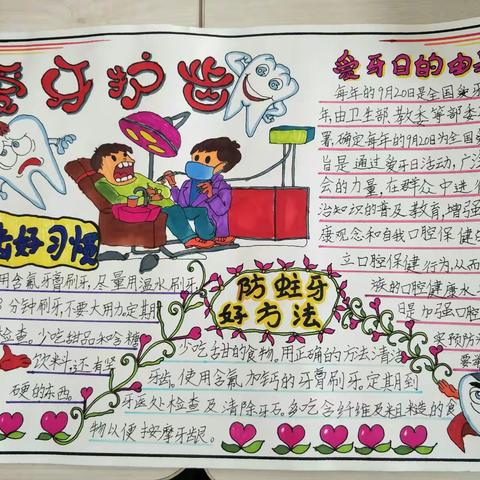 爱牙护齿
爱牙日的由来
每年的9月20日是全国爱牙
年,由卫生部、教委等部委
署,确定每年的9月20日为全国爱
旨是通过爱牙日活动,广泛
会的力量,在群众中进行
治知识的普及教育,增强
康观念和自我口腔保健的
立口腔保健行为,从而
族的口腔健康水
日是加强口腔
采预防为
要举
好习惯
用含氟牙膏刷牙,尽量用温水刷牙
3分钟刷牙,不要大用力。定期
检查。少吃甜品和含糖
饮料;还有坚
硬的东西。
防蛀牙
好方法
少吃甜甘的食物。用正确的方法清洁
牙齿。使用含氟、加钙的牙膏刷牙。定期到
牙医处检查及清除牙石。多吃含纤维及粗糙的食
物以便按摩牙龈。